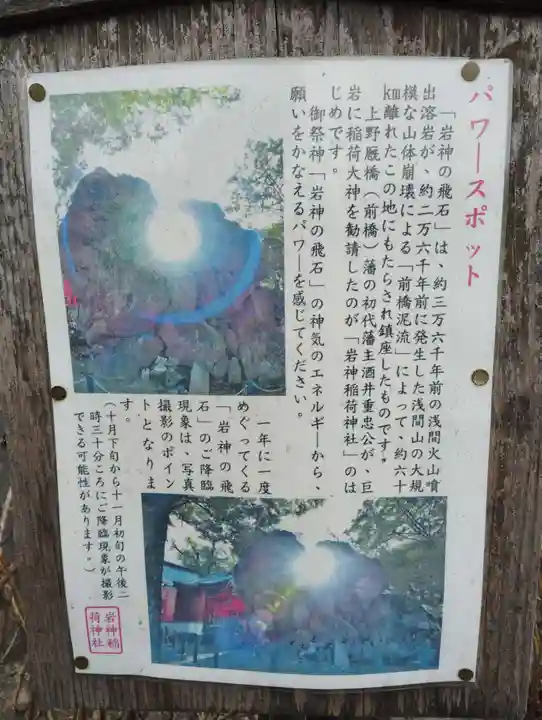 パワースポット
「岩神の飛石」は、約三万六千年前の浅間火山噴
出溶岩が、約二万六千年前に発生した浅間山の大規
模な山体崩壊による「前橋泥流」によって、約六十
㎞離れたこの地にもたらされ鎮座したものです。
上野厩橋（前橋）藩の初代藩主酒井重忠公が、巨
岩に稲荷大神を勧請したのが「岩神稲荷神社」のは
じめです。
御祭神「岩神の飛石」の神気のエネルギーから、
願いをかなえるパワーを感じてください。
一年に一度
めぐってくる
「岩神の飛
石」のご降臨
現象は、写真
撮影のポイン
トとなりま
す。
（十月下旬から十一月初旬の午後二
時三十分ころにご降臨現象が撮影
できる可能性があります。）
岩神稲
荷神社